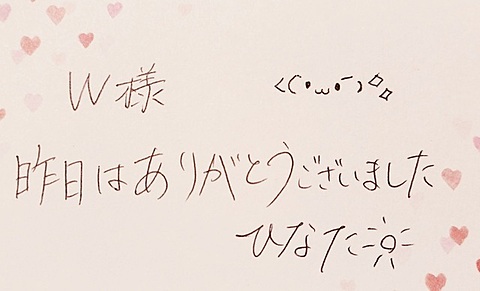 W様 <(•ω•́ )✧
昨日はありがとうございました
ひなた